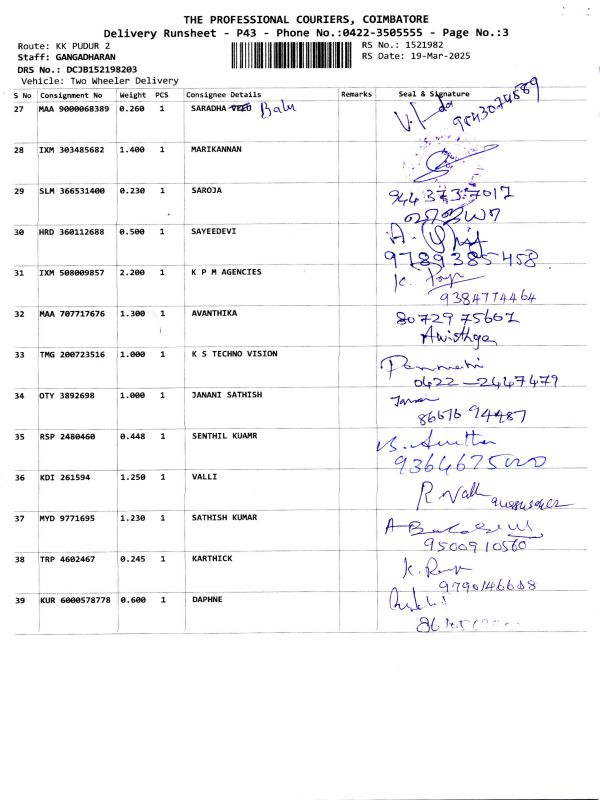 THE PROFESSIONAL COURIERS, COIMBATORE
Delivery Runsheet - P43 - Phone No.:0422-3505555 - Page No.:3
Route: KK PUDUR 2 RS No.: 1521982
Staff: GANGADHARAN RS Date: 19-Mar-2025
DRS No.: DCJB152198203
Vehicle: Two Wheeler Delivery
S No Consignment No Weight PCS Consignee Details Remarks Seal & Signature
27 MAA 9000068389 0.260 1 SARADHA Balu
28 IXM 303485682 1.400 1 MARIKANNAN
29 SLM 366531400 0.230 1 SAROJA
9443737017
30 HRD 360112688 0.500 1 SAYEEDEVI
9789385458
31 IXM 508009857 2.200 1 K P M AGENCIES
9384774464
32 MAA 707717676 1.300 1 AVANTHIKA
33 TMG 200723516 1.000 1 K S TECHNO VISION
0422-2447479
34 OTY 3892698 1.000 1 JANANI SATHISH
86676 94487
35 RSP 2480460 0.448 1 SENTHIL KUAMR
36 KDI 261594 1.250 1 VALLI
37 MYD 9771695 1.230 1 SATHISH KUMAR
9500910560
38 TRP 4602467 0.245 1 KARTHICK
39 KUR 6000578778 0.600 1 DAPHNE